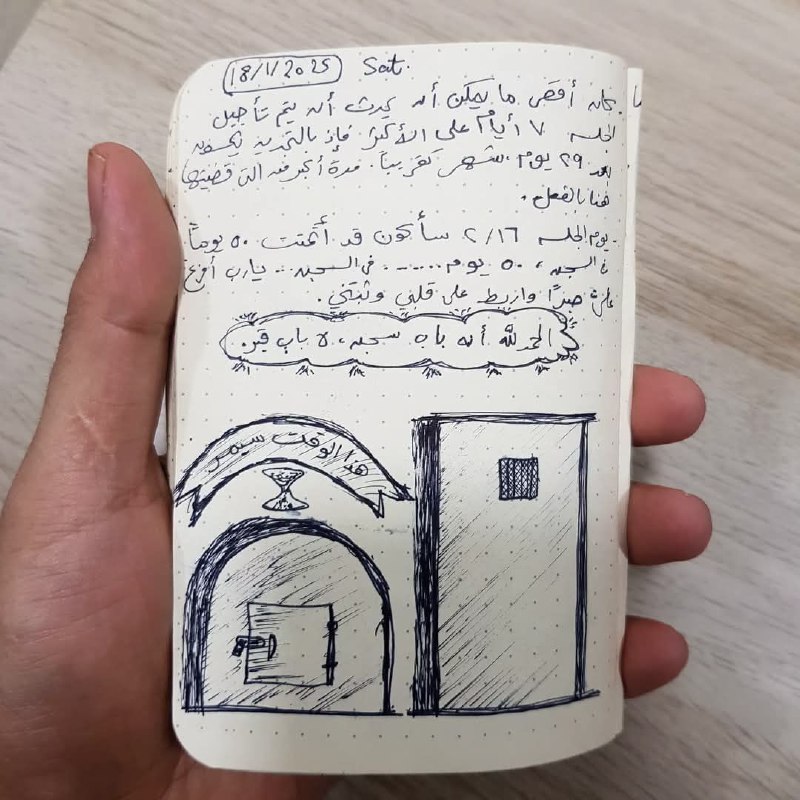 18/1/2025 Sat.
كان أقصى ما يمكن أن يحدث أن يتم تأجيل
الجلسة ٧ أيام على الأكثر فإذ بالتجديد يكون
بعد ٢٩ يوم، شهر تقريباً. مدة أكبر من التي قضيتها
هنا بالفعل.
يوم الجلسة ٢/١٦ سأكون قد أتممت ٥٠ يوماً
في السجن، ٥٠ يوم...... في السجن.. يارب أفرغ
عليّ صبرًا واربط على قلبي وثبتني.
الحمد لله أنه باب سجن، لا باب قبر.
هذا الوقت سيمر